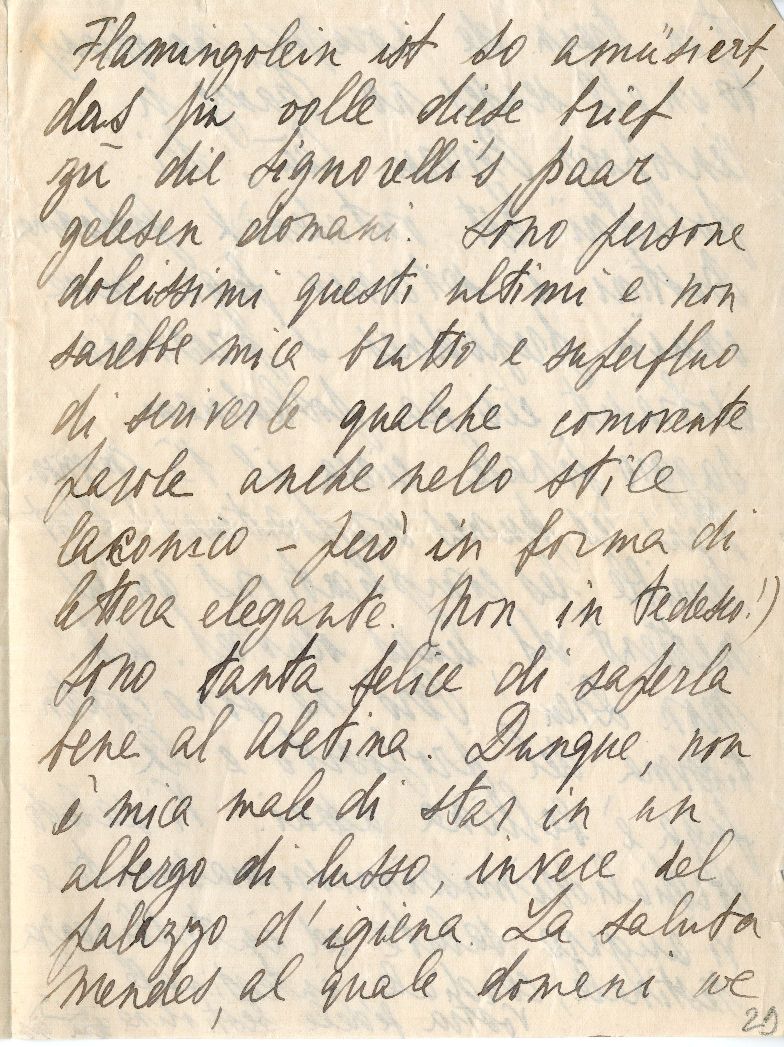 Flamingolein ist so amüsiert,
das sie volle diese brief
zū die Signorelli's paar
gelesen domani. Sono persone
dolcissimi questi ultimi e non
sarebbe mica brutto e superfluo
di scriverle qualche comovente
parole anche nello stile
laconico – però in forma di
lettera elegante. (Non in tedesco!)
Sono tanta felice di saperla
bene al Abetina. Dunque, non
è mica male di star in un
albergo di lusso, invece del
palazzo d'igiena. La saluta
Mendes, al quale domeni
29